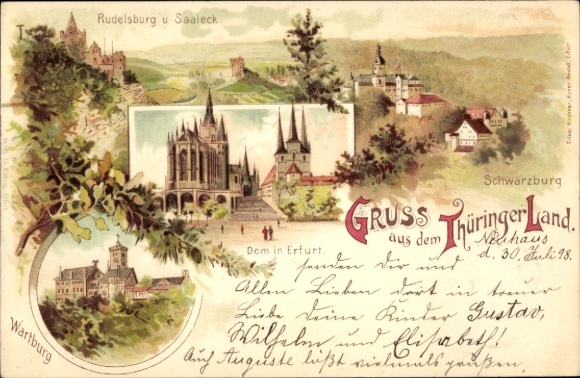 Rudelsburg u Saaleck
Schwarzburg
GRUSS
aus dem Thüringer Land.
Dom in Erfurt.
Wartburg
Neuhaus
d. 30. Juli 98.
senden dir und
Allen Lieben dort in treuer
Liebe Deine Kinder Gustav,
Wilhelm und Elisabeth!
Auch Auguste läßt vielmals grüßen.